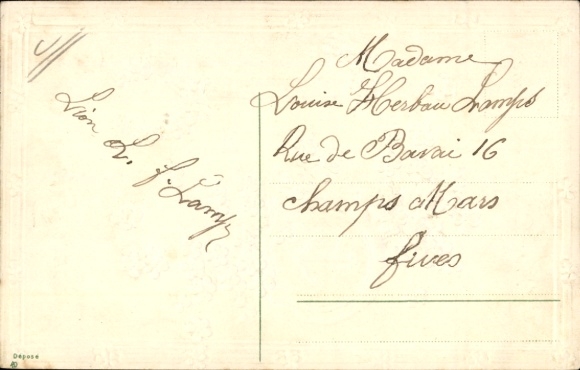 Lion L. f. Lamps
Madame
Louise Herbau Lamps
Rue de Bavai 16
Champs Mars
fives
Déposé